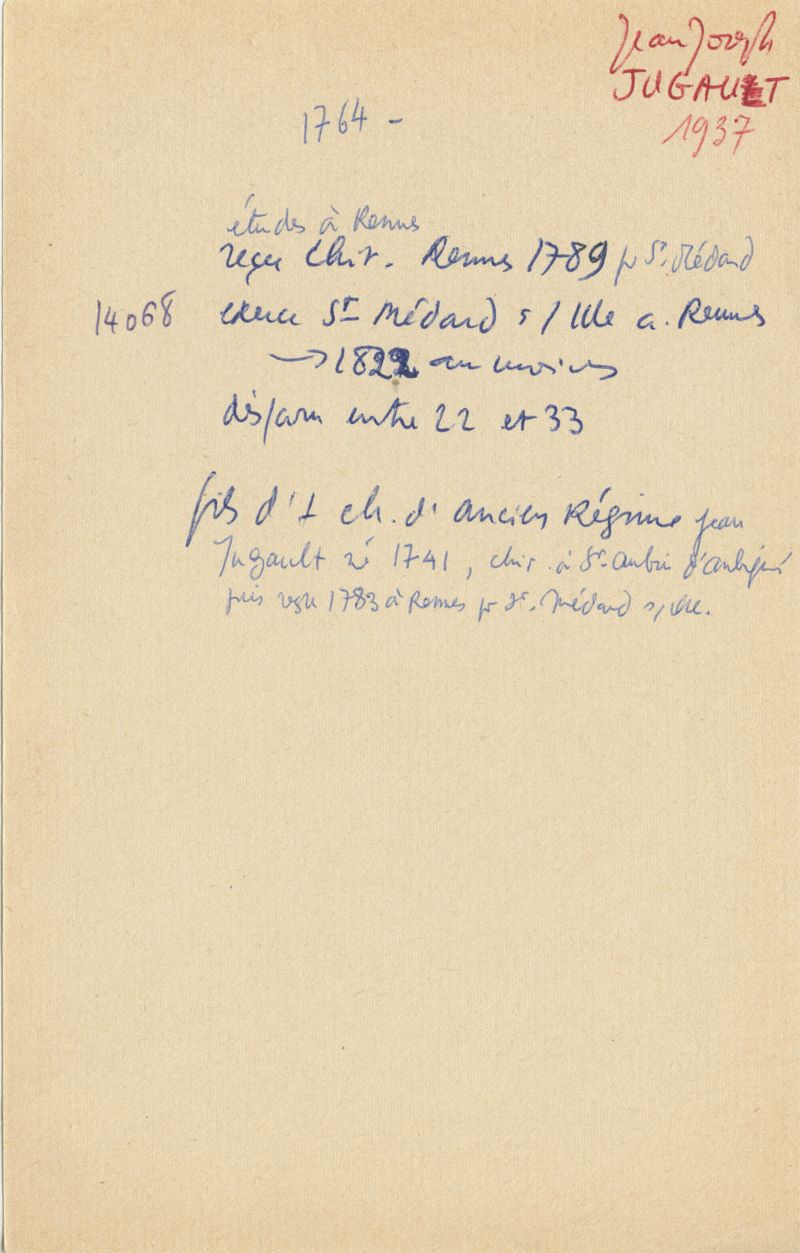 Jean Joseph
JUGAULT
1937
1764 -
études à Rennes
reçu Chir. Rennes 1789 pr St. Médard
14068 exerce St Médard s/ Ille a. Rennes
→ 1822 au moins
disparu entre 22 et 33
fils d'1 ch. d'ancien Régime Jean
Jugault né 1741, chir. à St. Aubin d'Aubigné
puis reçu 1783 à Rennes pr St. Médard s/ Ille.